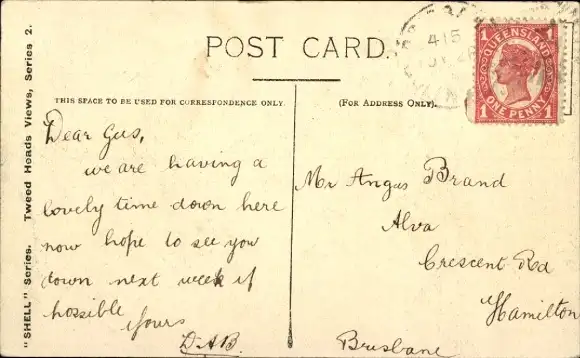 "SHELL" Series. Tweed Heads Views, Series 2.
POST CARD.
THIS SPACE TO BE USED FOR CORRESPONDENCE ONLY
(FOR ADDRESS ONLY).
415
1 QUEENSLAND 1
1 ONE PENNY 1
Dear Gus,
we are having a
lovely time down here
now hope to see you
down next week if
possible
Yours
D.A.B.
Mr Angus Brand
Alva
Crescent Rd
Hamilton
Brisbane